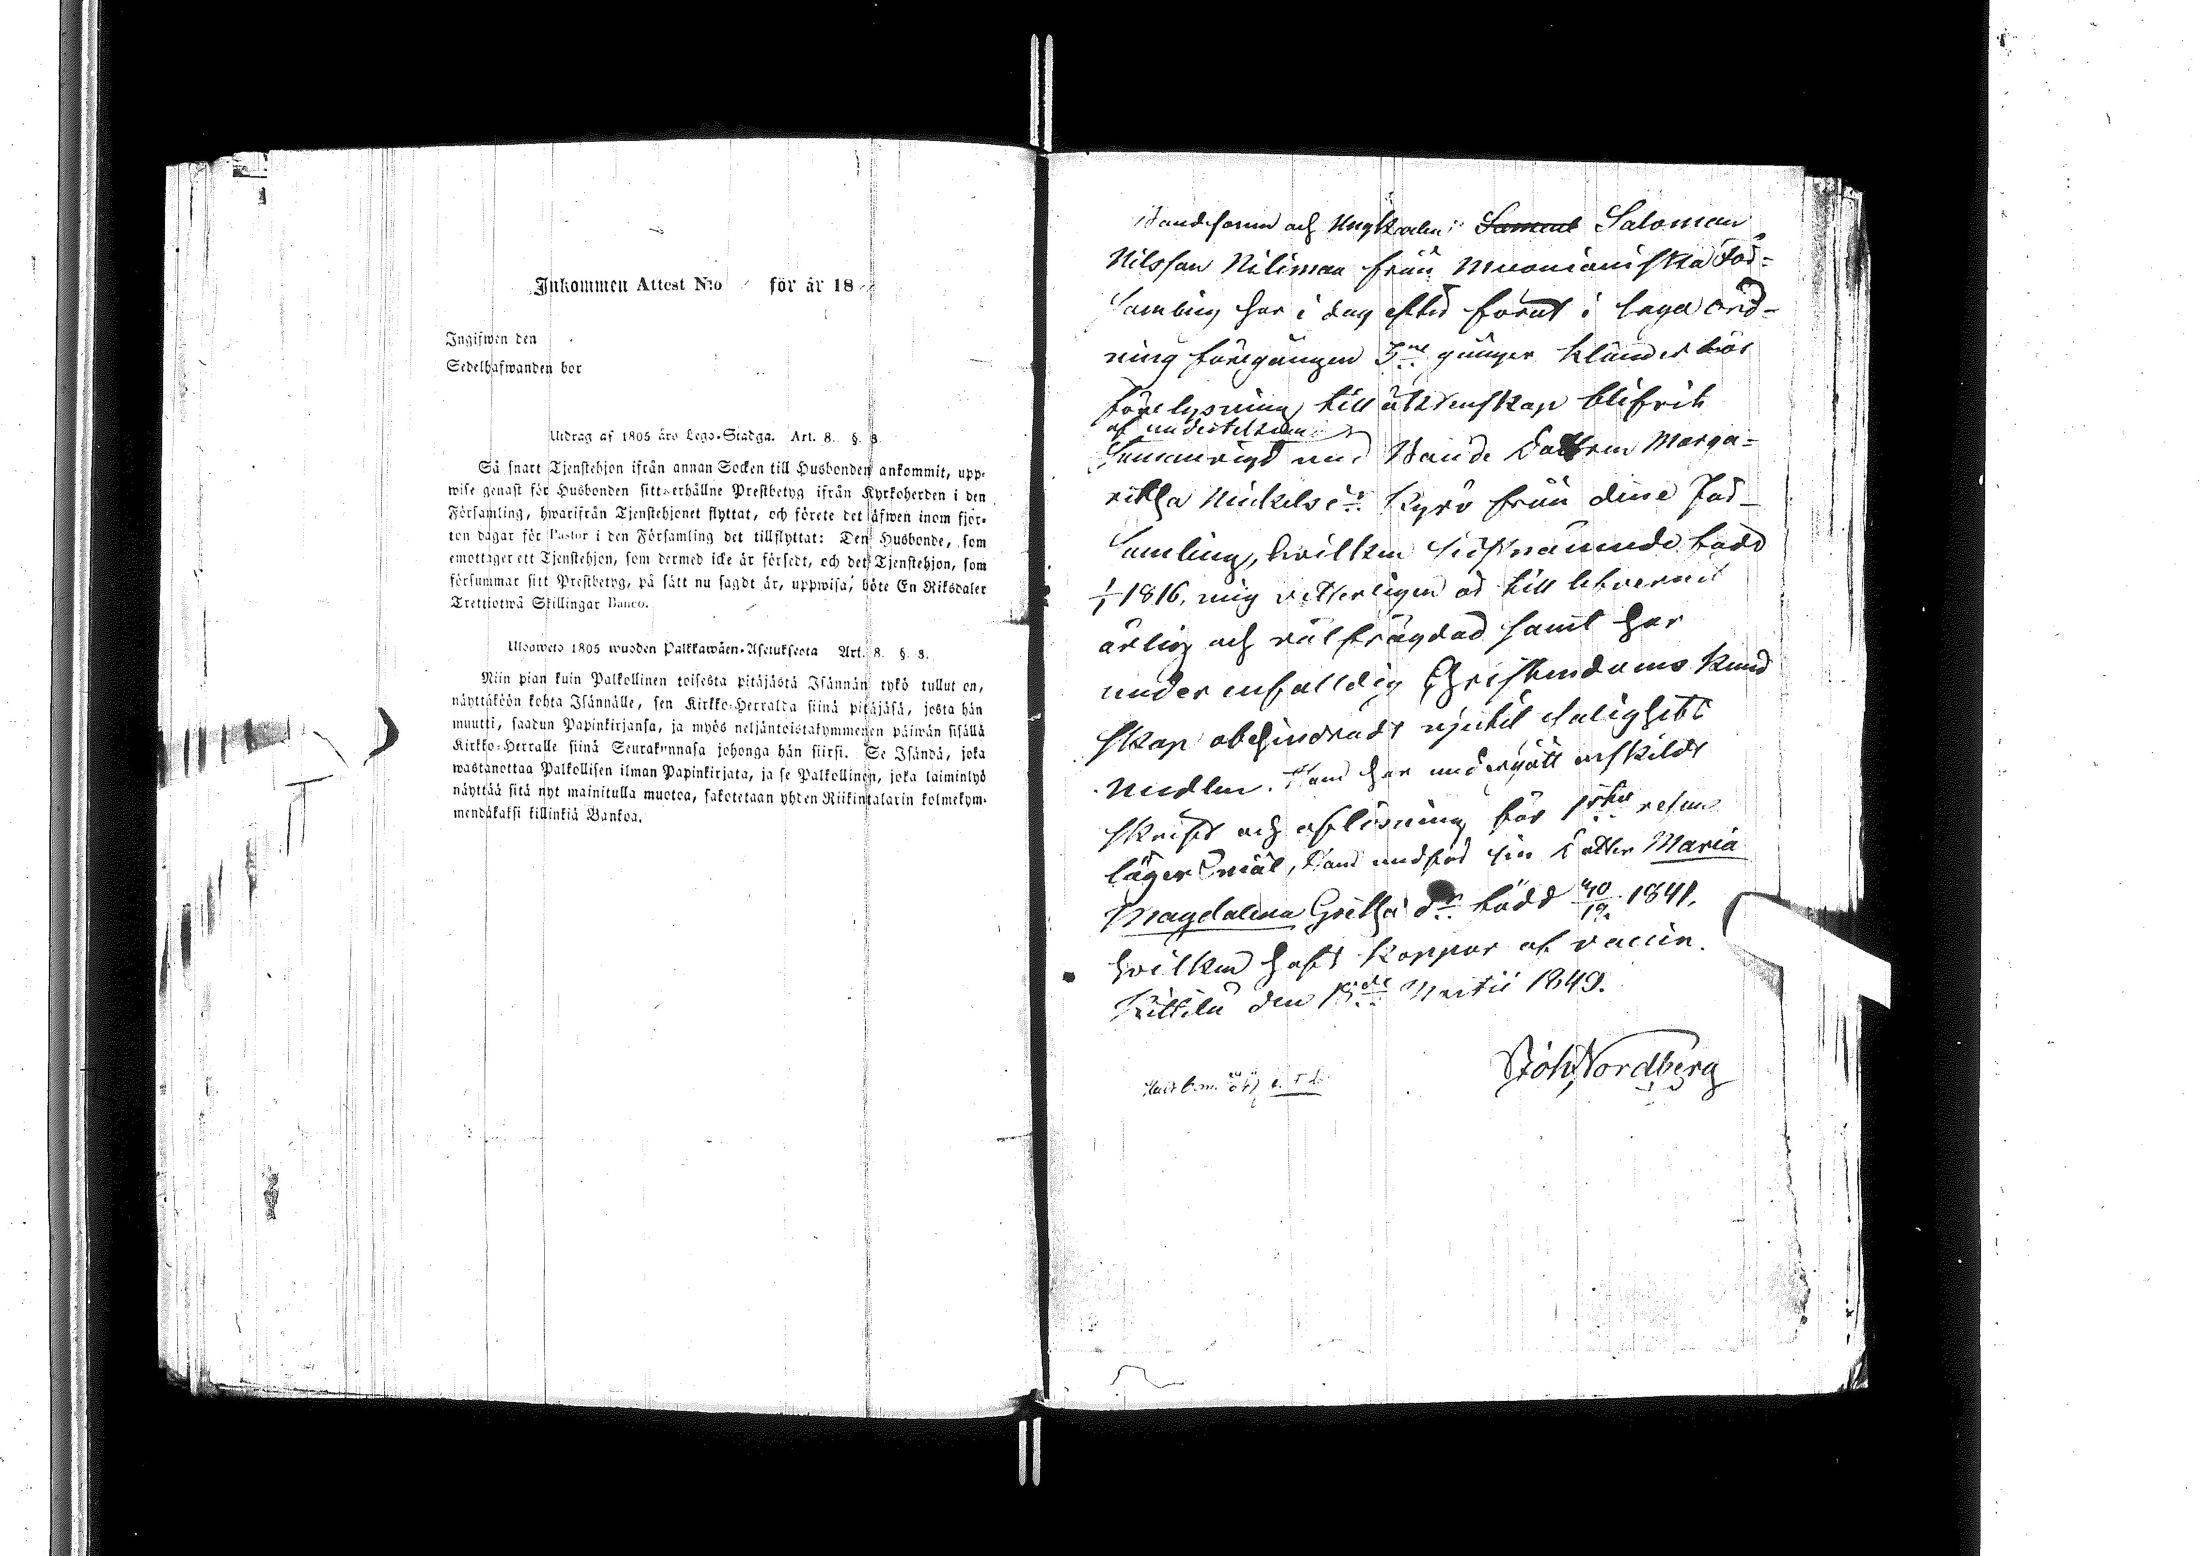 Inkommen Attest N:o för år 18
Ingifwen den
Sedelhafwanden bor
Utdrag af 1805 års Lego-Stadga. Art. 8. §. 3.
Så snart Tjenstehjon ifrån annan Socken till Husbonden ankommit, upp-
wise genast för Husbonden sitt erhållne Prestbetyg ifrån Kyrkoherden i den
Församling, hwarifrån Tjenstehjonet flyttat, och förete det äfwen inom fjor-
ton dagar för Pastor i den Församling det tillflyttat: Den Husbonde, som
emottager ett Tjenstehjon, som dermed icke är försedt, och det Tjenstehjon, som
försummar sitt Prestbetyg, på sätt nu sagdt är, uppwisa, böte En Riksdaler
Trettiotwå Skillingar Banco.
Ulosweto 1805 wuoden Palkkawäen-Asetuksesta Art. 8. §. 3.
Niin pian kuin Palkollinen toisesta pitäjästä Isännän tykö tullut on,
näyttäköön kohta Isännälle, sen Kirkko-Herralda siinä pitäjäsä, josta hän
muutti, saadun Papinkirjansa, ja myös neljäntoistakymmenen päiwän sisällä
Kirkko-Herralle siinä Seurakunnasa johonga hän siirsi. Se Isändä, joka
wastanottaa Palkollisen ilman Papinkirjata, ja se Palkollinen, joka laiminlyö
näyttää sitä nyt mainitulla muotoa, sakotetaan yhden Riikintalarin kolmekym-
mendäkaksi killinkiä Bankoa.
och Ungkarlen Samuel Salomon
Nilsson Niliman från Muonioniska För-
samling har i dag efter förut i laga ord-
ning föregången 3ne gånger
förelysning till äktenskap blifvit
af undertecknad
med Bonde Dottren Marga-
retha Mickelsdr Kyrö från dine För-
samling, hvilken sistnämnde född
1/1 1816, mig veterligen är till lefvernet
ärlig och välfrägdad samt har
under enfalldig Christendoms kund
skap obehindradt njutit salighets
Medlen. har undergått enskildt
skrift och aflösning för 1sta resan
lägersmål, sin dotter Maria
Magdalena Gretha dr född 1841,
hvilken haft koppor af vaccin.
Kittilä den 13de Martii 1849.
Joh. Nordberg